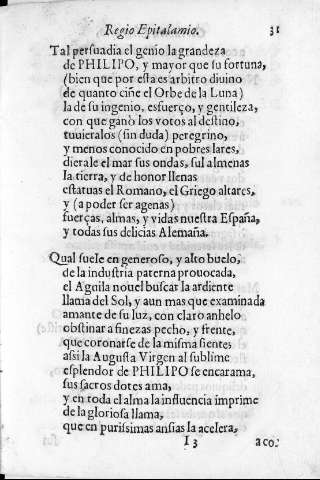 Regio Epitalamio. 31
Tal persuadia el genio la grandeza
de PHILIPO, y mayor que su fortuna,
(bien que por esta es arbitro diuino
de quanto ciñe el Orbe de la Luna)
la de su ingenio, esfuerço, y gentileza,
con que ganò los votos al destino,
tuuieralos (sin duda) peregrino,
y menos conocido en pobres lares,
dierale el mar sus ondas, sus almenas
la tierra, y de honor llenas
estatuas el Romano, el Griego altares,
y (a poder ser agenas)
fuerças, almas, y vidas nuestra España,
y todas sus delicias Alemaña.
Qual suele en generoso, y alto buelo,
de la industria paterna prouocada,
el Aguila nouel buscar la ardiente
llama del Sol, y aun mas que examinada
amante de su luz, con claro anhelo
obstinar a finezas pecho, y frente,
que coronarse de la misma siente;
assi la Augusta Virgen al sublime
esplendor de PHILIPO se encarama,
sus sacros dotes ama,
y en toda el alma la influencia imprime
de la gloriosa llama,
que en purissimas ansias la acelera,
I 3 aco-